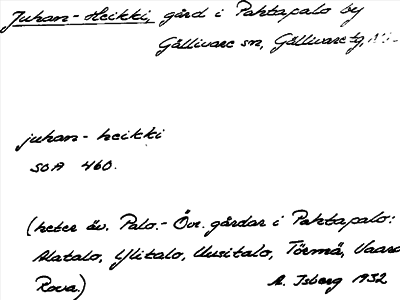 Juhan-Heikki, gård i Pahtapalo by
Gällivare sn, Gällivare tg,
juhan-heikki
SOA 460.
(heter äv. Palo.- Övr. gårdar i Pahtapalo:
Alatalo, Ylitalo, Uusitalo, Törmä, Vaara
Rova.)
A. Isberg 1932